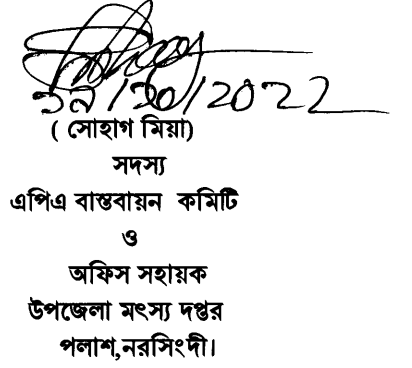 ১৯/১০/2022
( সোহাগ মিয়া)
সদস্য
এপিএ বাস্তবায়ন কমিটি
ও
অফিস সহায়ক
উপজেলা মৎস্য দপ্তর
পলাশ,নরসিংদী।